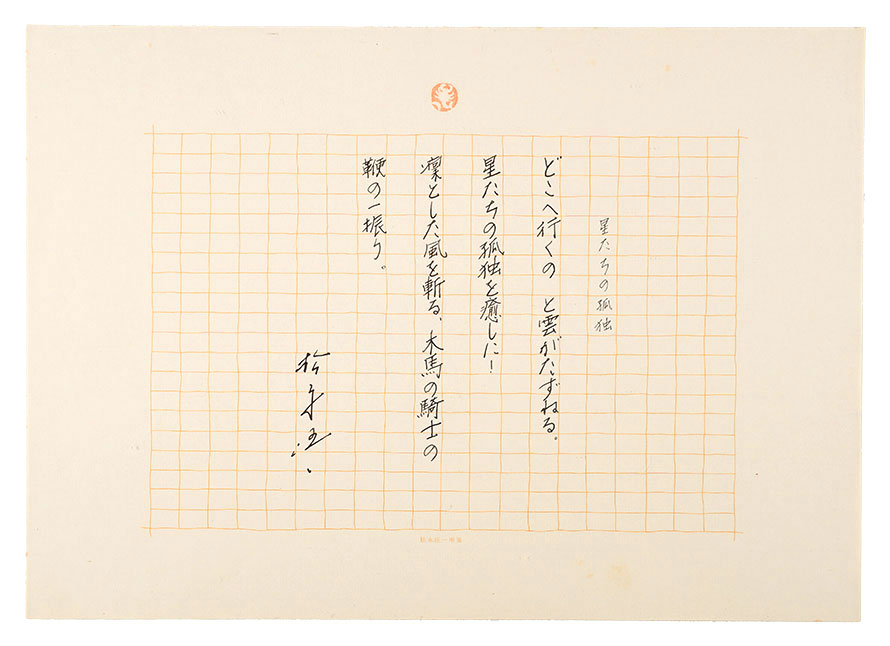 星たちの孤独
どこへ行くの と雲がたずねる。
星たちの孤独を癒しに!
凛とした風を斬る、木馬の騎士の
鞭の一振り。